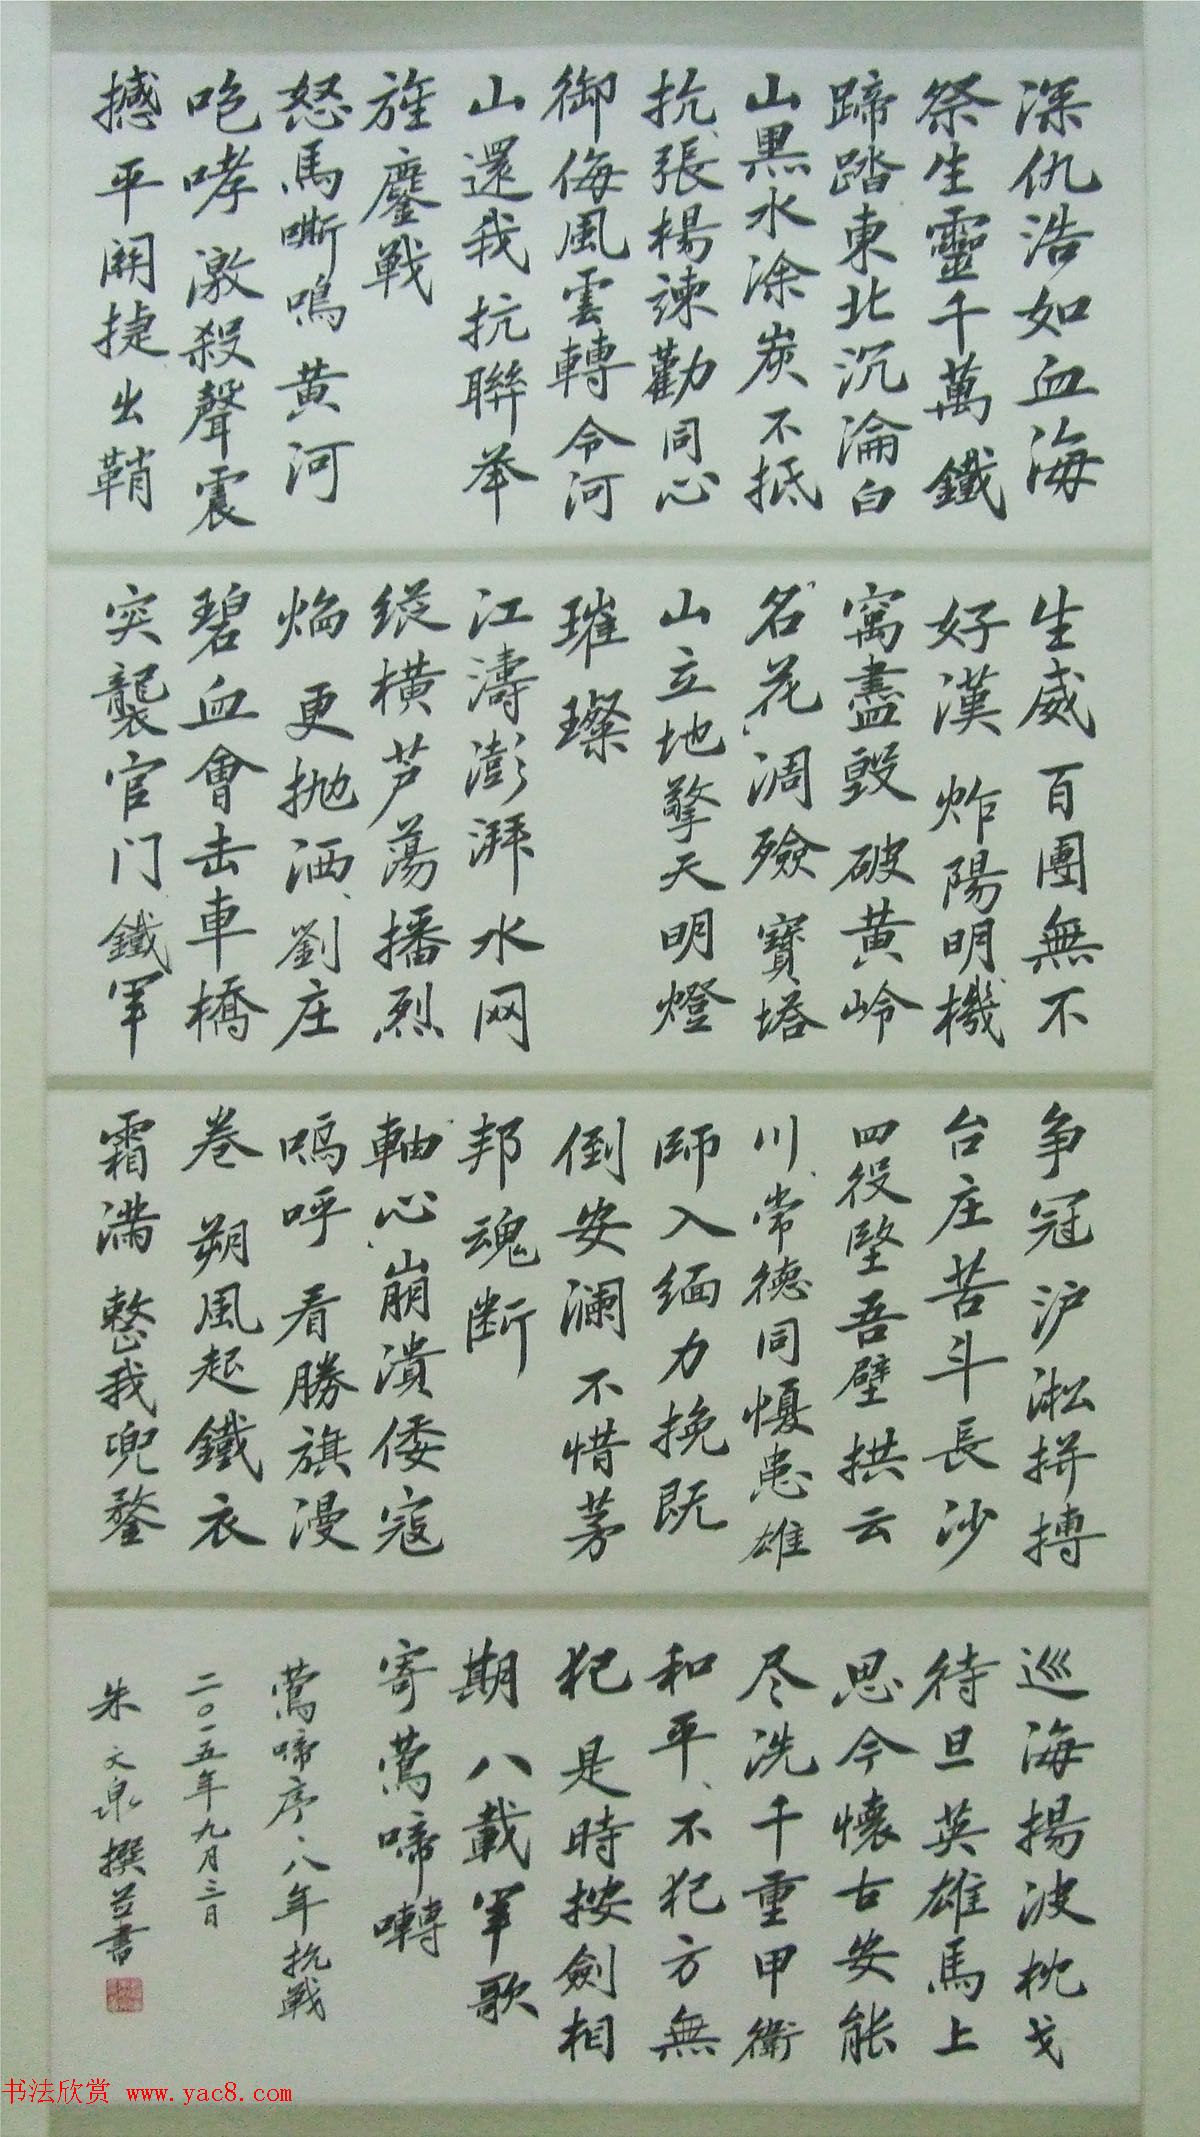 深仇浩如血海
祭生靈千萬鐵
蹄踏東北沉淪白
山黑水涂炭不抵
抗張楊諫勸同心
御侮風雲轉令河
山還我抗聯举
旌鏖戰
怒馬嘶鳴黄河
咆哮激殺聲震
撼平關捷出鞘
生威百團無不
好漢炸陽明機
窩盡毁破黄岭
名花凋殮寶塔
山立地擎天明燈
璀璨
江濤澎湃水网
縱横芦荡播烈
焰更抛洒劉庄
碧血會击車橋
突襲官门鐵军
争冠沪淞拼搏
台庄苦斗長沙
四役堅吾壁拱云
川常德同憂患雄
師入缅力挽既
倒安澜不惜茅
邦魂断
軸心崩潰倭寇
嗚呼看勝旗漫
卷朔風起鐵衣
霜满整我兜鍪
巡海揚波枕戈
待旦英雄馬上
思今懷古安能
尽洗千重甲衛
和平不犯方無
犯是時按劍相
期八載军歌
寄莺啼囀
莺啼序八年抗戰
二〇一五年九月三日
朱文泉撰并書
书法欣赏 www.yac8.com